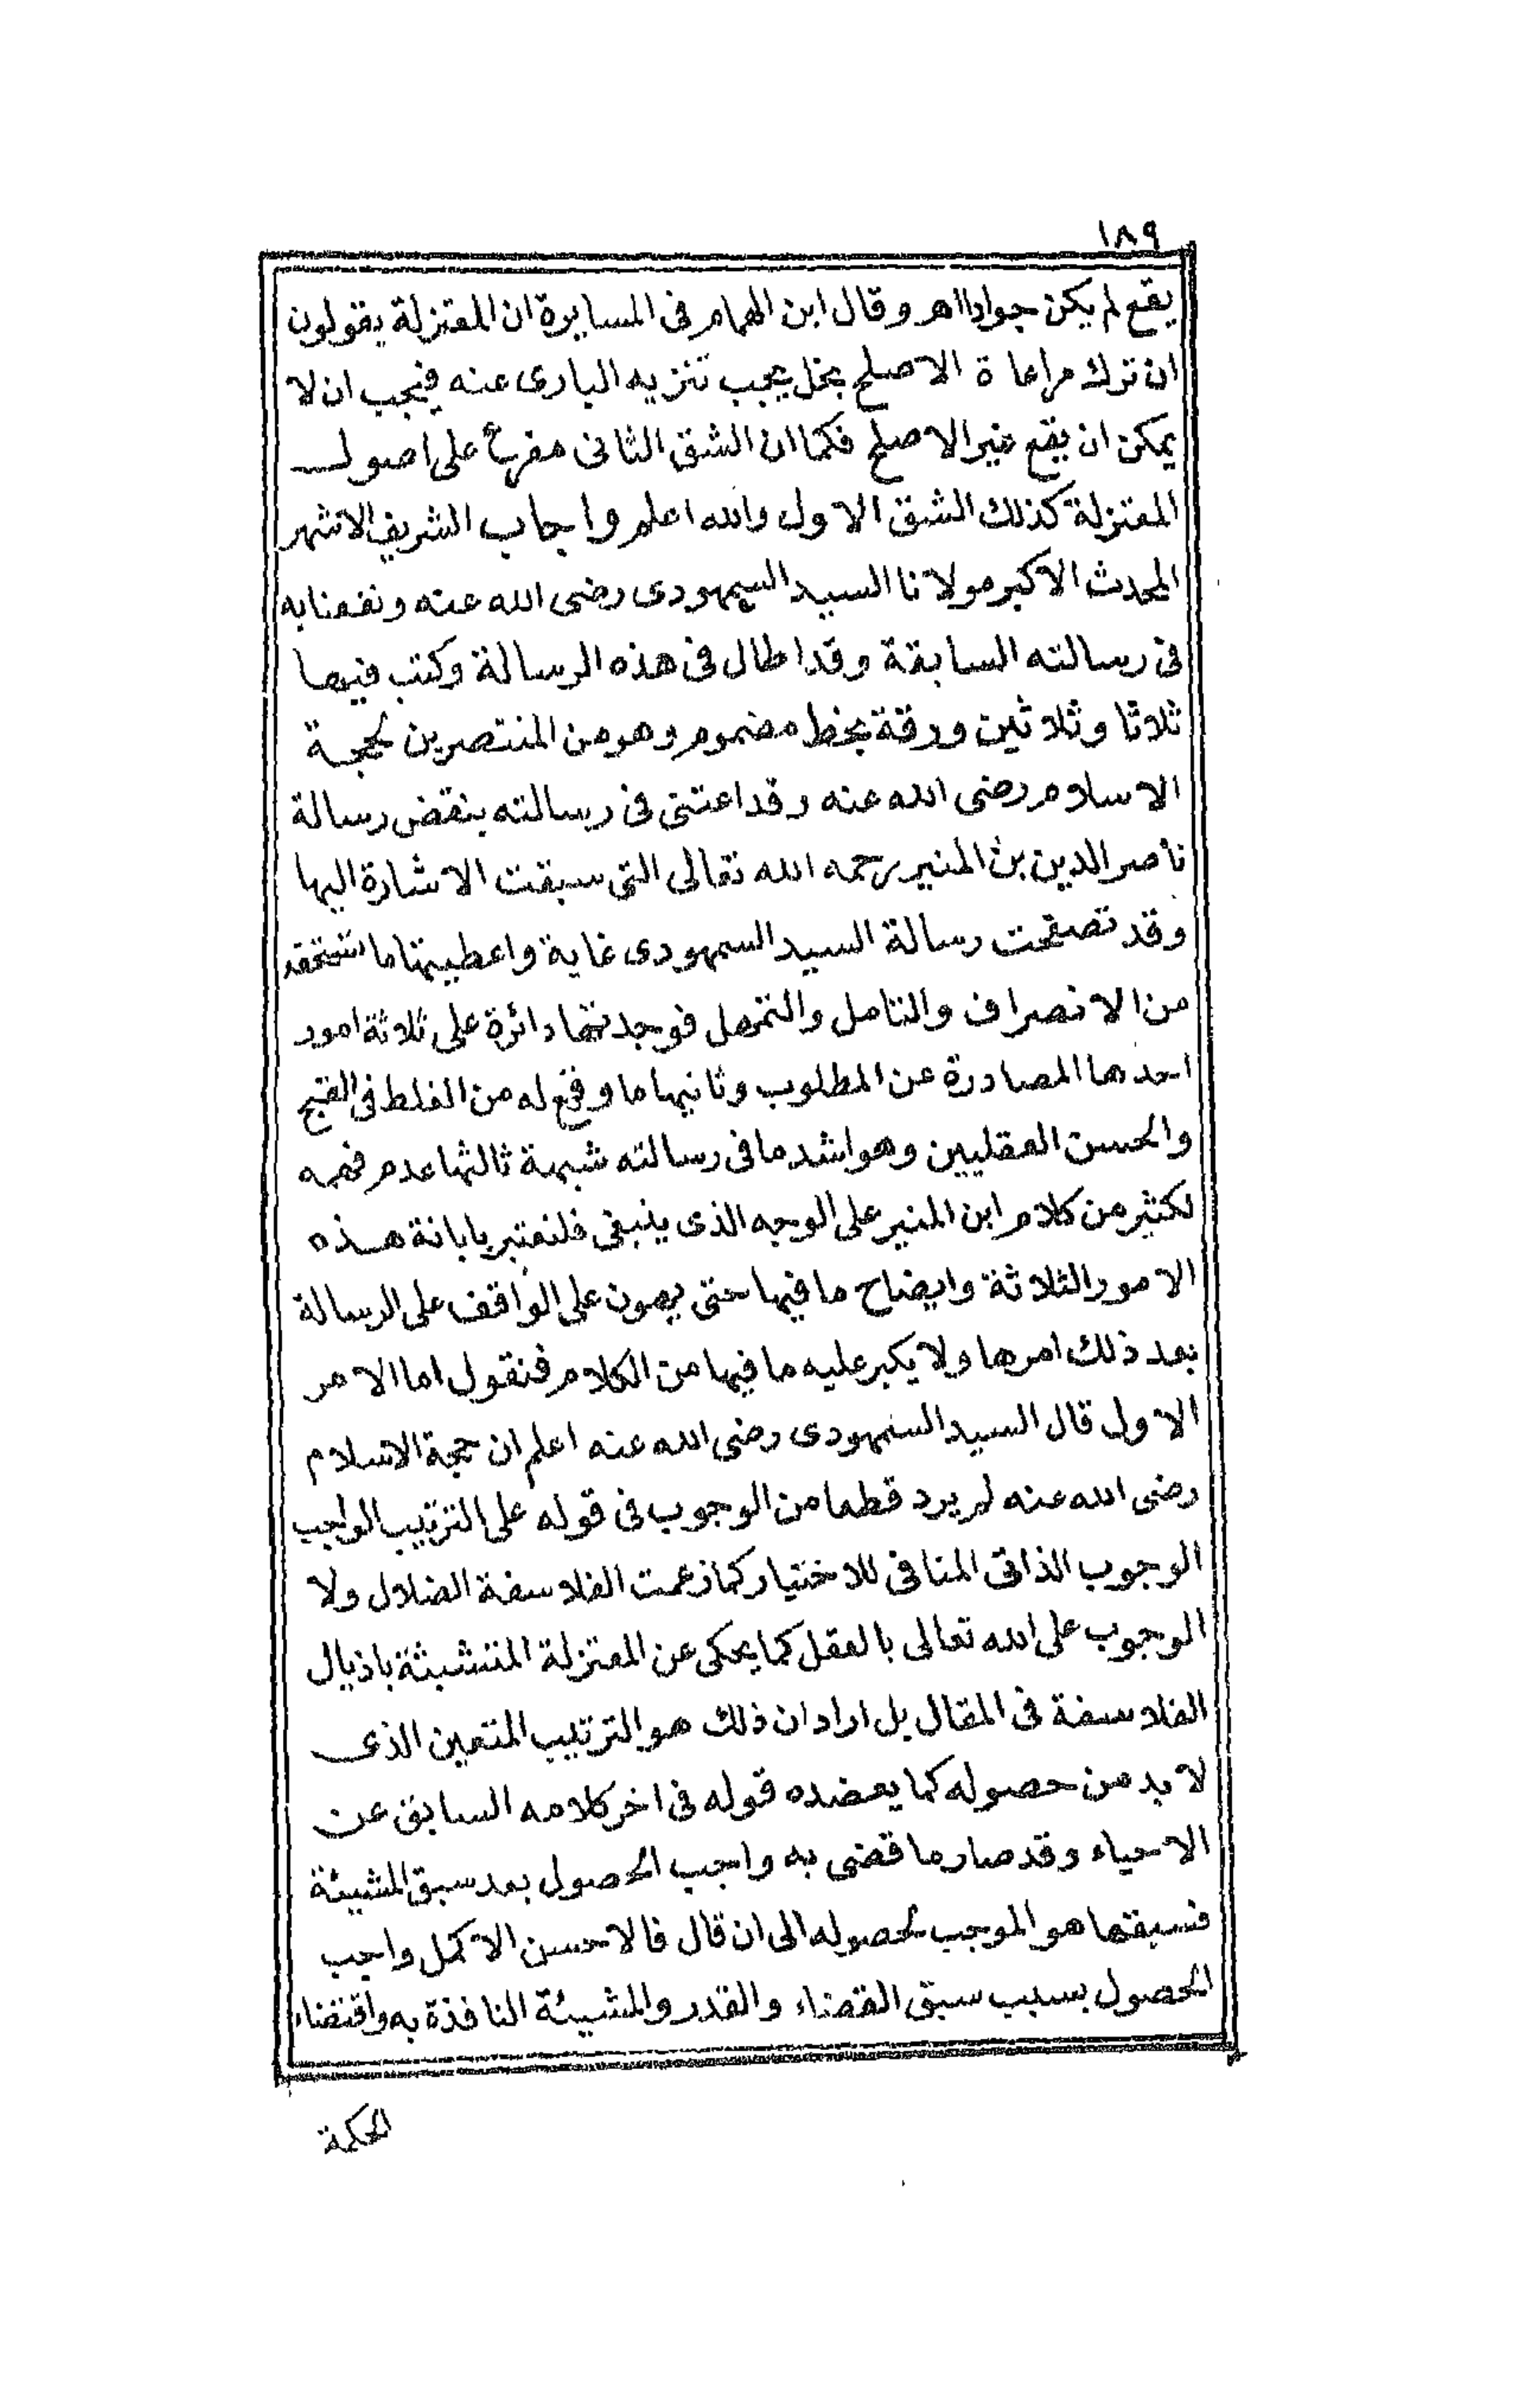 ١٨٩
يقع لم يكن جوادا اهر وقال ابن الهمام في المسايرة ان المعتزلة يقولون
ان ترك مراعاة الاصلح بخل يجب تنزيه البارى عنه فيجب ان لا
يمكن ان يقع غير الاصلح فكما ان الشق الثانى مفرع على اصول
المعتزلة كذلك الشق الاول والله اعلم واجاب الشريف الاشهر
المحدث الاكبر مولانا السيد السمهودى رضى الله عنه ونفعنا به
فى رسالته السابقة وقد اطال فى هذه الرسالة وكتب فيها
ثلاثا وثلاثين ورقة بخط مضموم وهو من المنتصرين لحجة
الاسلام رضى الله عنه وقد اعتنى فى رسالته بنقض رسالة
ناصر الدين بن المنير رحمه الله تعالى التى سبقت الاشارة اليها
وقد تصفحت رسالة السيد السمهودى غاية واعطيتها ما تستحقه
من الانصراف والتامل والتمهل فوجدتها دائرة على ثلاثة امور
احدها المصادرة عن المطلوب وثانيها ما وقع له من الغلط فى القبح
والحسن العقليين وهو اشد ما فى رسالته شبهة ثالثها عدم فهمه
لكثير من كلام ابن المنير على الوجه الذى ينبغى فلنعتبر بابانة هذه
الامور الثلاثة وايضاح ما فيها حتى يهون على الواقف على الرسالة
بعد ذلك امرها ولا يكبر عليه ما فيها من الكلام فنقول اما الامر
الاول قال السيد السمهودى رضى الله عنه اعلم ان حجة الاسلام
رضى الله عنه لم يرد قطعا من الوجوب فى قوله على الترتيب الواجب
الوجوب الذاتى المنافى للاختيار كما زعمت الفلاسفة الضلال ولا
الوجوب على الله تعالى بالعقل كما يحكى عن المعتزلة المتشبثة باذيال
الفلاسفة فى المقال بل اراد ان ذلك هو الترتيب المتعين الذى
لا بد من حصوله كما يعضده قوله فى اخر كلامه السابق عن
الاحياء وقد صار ما قضى به واجب الحصول بعد سبق المشيئة
فسبقها هو الموجب لحصوله الى ان قال فالاحسن الاكمل واجب
الحصول بسبب سبق القضاء والقدر والمشيئة النافذة به واقتضاء
الحكمة